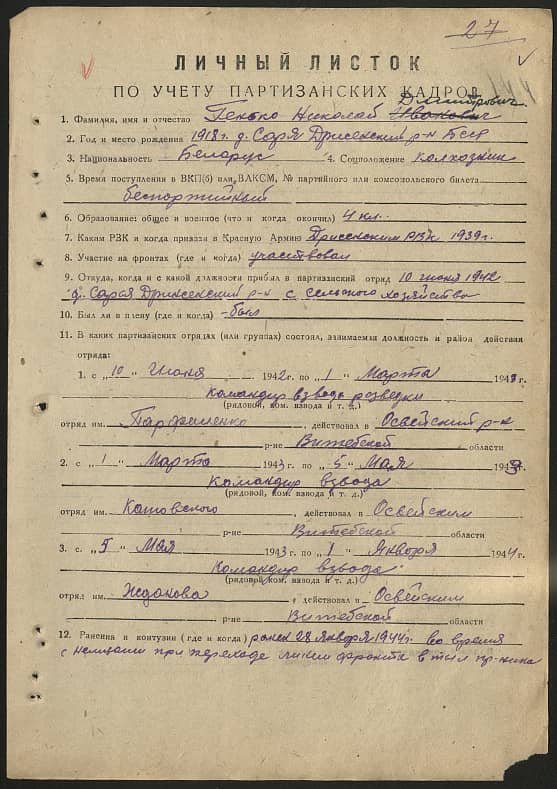 27
ЛИЧНЫЙ ЛИСТОК
ПО УЧЕТУ ПАРТИЗАНСКИХ КАДРОВ
Дмитрович
1. Фамилия, имя и отчество Генько Николай Иванович
2. Год и место рождения 1918 г. д. Сарья Дриссенский р-н БССР
3. Национальность Беларус 4. Соцположение колхозник
5. Время поступления в ВКП(б) или ВЛКСМ, № партийного или комсомольского билета
беспартийный
6. Образование: общее и военное (что и когда окончил) 4 кл.
7. Каким РВК и когда призван в Красную Армию Дрисенским РВК 1939 г.
8. Участие на фронтах (где и когда) участвовал
9. Откуда, когда и с какой должности прибыл в партизанский отряд 10 июня 1942
д. Сарья Дриссенский р-н с сельского хозяйства
10. Был ли в плену (где и когда) - был
11. В каких партизанских отрядах (или группах) состоял, занимаемая должность и район действия
отряда:
1. с „10" Июня 1942 г. по „1" Марта 1943 г.
командир взвода разведки
(рядовой, ком. взвода и т. д.)
отряд им. Пархоменко, действовал в Освейский р-н
р-не Витебской области
2. с „1" Марта 1943 г. по „5" Мая 1943
командир взвода
(рядовой, ком. взвода и т. д.)
отряд им. Котовского, действовал в Освейским
р-не Витебской области
3. с „5" Мая 1943 г. по „1" Января 1944
командир взвода
(рядовой, ком. взвода и т. д.)
отряд им. Жданова, действовал в Освейским
р-не Витебской области
12. Ранения и контузии (где и когда) ранен 28 января 1944 г. во время
с немцами при переходе линии фронта в тыл пр-ника